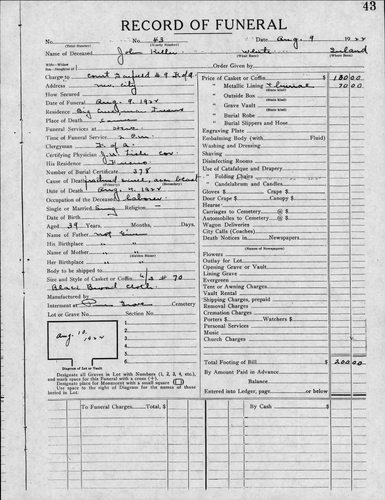 43
RECORD OF FUNERAL
No. No. #3 Date Aug. 9 1922
(Total Number) (Yearly Number)
Name of Deceased John White Ireland
(What Race) (Where Born)
Wife—Widow
Son—Daughter of Order Given by
Charge to Court # 9 F. of A.
Address city
How Secured
Date of Funeral Aug. 9. 1922
Place of Death
Funeral Services at
Time of Funeral Service 2 P.m.
Clergyman F. of A.
Certifying Physician Cor.
His Residence Fresno
Number of Burial Certificate 378
Cause of Death
Date of Death Aug. 4, 1922
Occupation of the Deceased laborer
Single or Married Religion
Date of Birth
Aged 39 Years, Months, Days.
Name of Father not
His Birthplace " "
Name of Mother " "
(Maiden Name)
Her Birthplace " "
Body to be shipped to
Size and Style of Casket or Coffin # 70
Black Cloth
Manufactured by
Interment at Pine Grove Cemetery
Lot or Grave No. Section No.
Aug. 10, 1922
Diagram of Lot or Vault
Designate all Graves in Lot with Numbers (1, 2, 3, 4, etc.),
and mark space for this Funeral with a cross (+).
Designate place for Monument with a small square
Use space to the right of Diagram for the names of those
buried in Lot.
Price of Casket or Coffin $ 130 00
" Metallic Lining & burial 70 00
(State Kind)
" Outside Box
(State Kind)
" Grave Vault
(State Kind)
" Burial Robe
" Burial Slippers and Hose
Engraving Plate
Embalming Body (with Fluid)
Washing and Dressing
Shaving
Disinfecting Rooms
Use of Catafalque and Drapery
" Folding Chairs
" Candelabrum and Candles
Gloves $ Crape $
Door Crape $ Canopy $
Hearse
Carriages to Cemetery @ $
Automobiles to Cemetery @ $
Wagon Deliveries @ $
City Calls (Coaches) @ $
Death Notices in Newspapers
(Names of Newspapers)
Flowers
Outlay for Lot
Opening Grave or Vault
Lining Grave
Evergreen
Tent or Awning Charges
Vault Rental
Shipping Charges, prepaid
Removal Charges
Cremation Charges
Porters $ Watchers $
Personal Services
Music
Church Charges
Total Footing of Bill $ 200 00
By Amount Paid in Advance
Balance
Entered into Ledger, page or below
To Funeral Charges, Total $ By Cash $